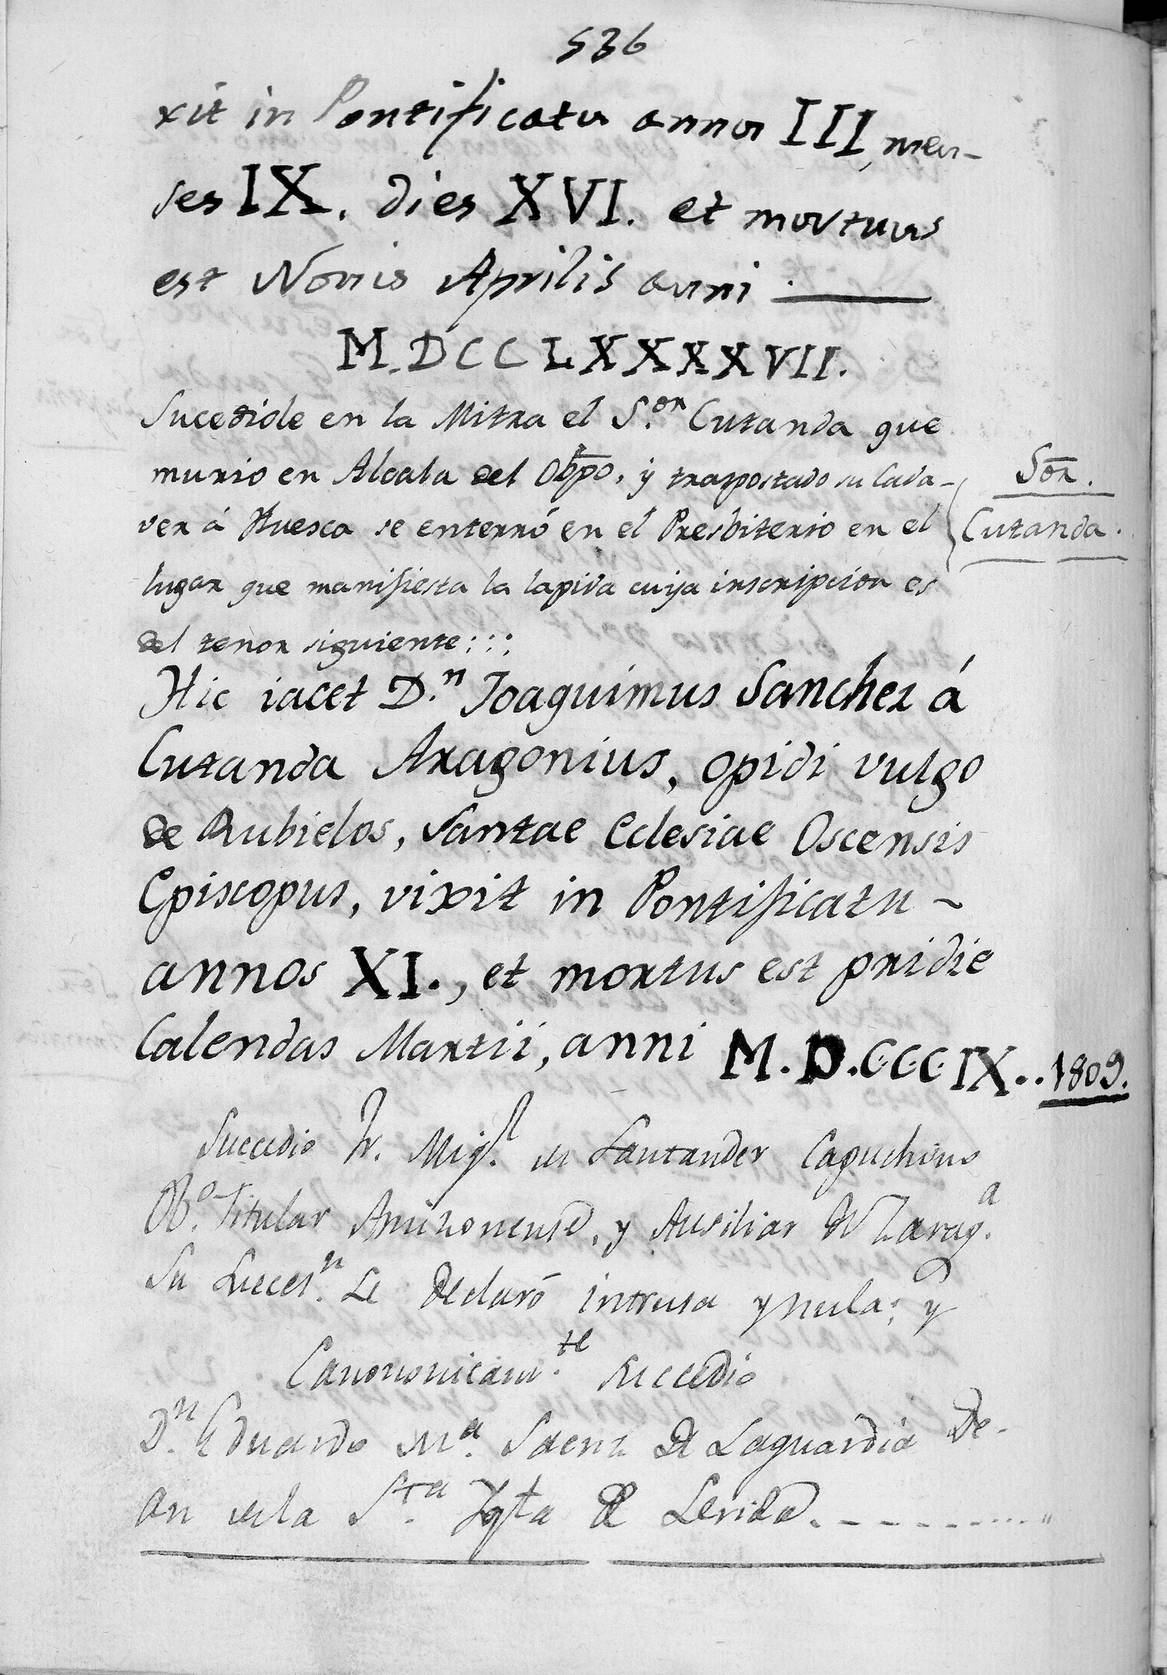 536
xit in Pontificatu annos III, men-
ses IX. dies XVI. et mortuus
est Nonis Aprilis anni
M.DCCLXXXXVII.
Sucedióle en la Mitra el S.or Cutanda que
murio en Alcala del Obpo, y traspostado su Cada-
ver á Huesca se enterró en el Presbiterio en el
lugar que manifiesta la lapida cuya inscripcion es
del tenor siguiente:::
Sor.
Cutanda.
Hic iacet D.n Joaquimus Sanchez á
Cutanda Aragonius, opidi vulgo
de Rubielos, Santae Eclesiae Oscensis
Episcopus, vixit in Pontificatu ~
annos XI., et mortus est pridie
Calendas Martii, anni M.D.CCCIX..1809.
Succedio Fr. Mig.l de Santander Capuchino
Ob.o Titular Amizonense, y Ausiliar de Zarag.a
Su Succes.n Se declaró intrusa y nula; y
Canononicam.te succedio
D.n Eduardo M.a Saenz de Laguardia De-
an de la S.ta Igta de Lerida.